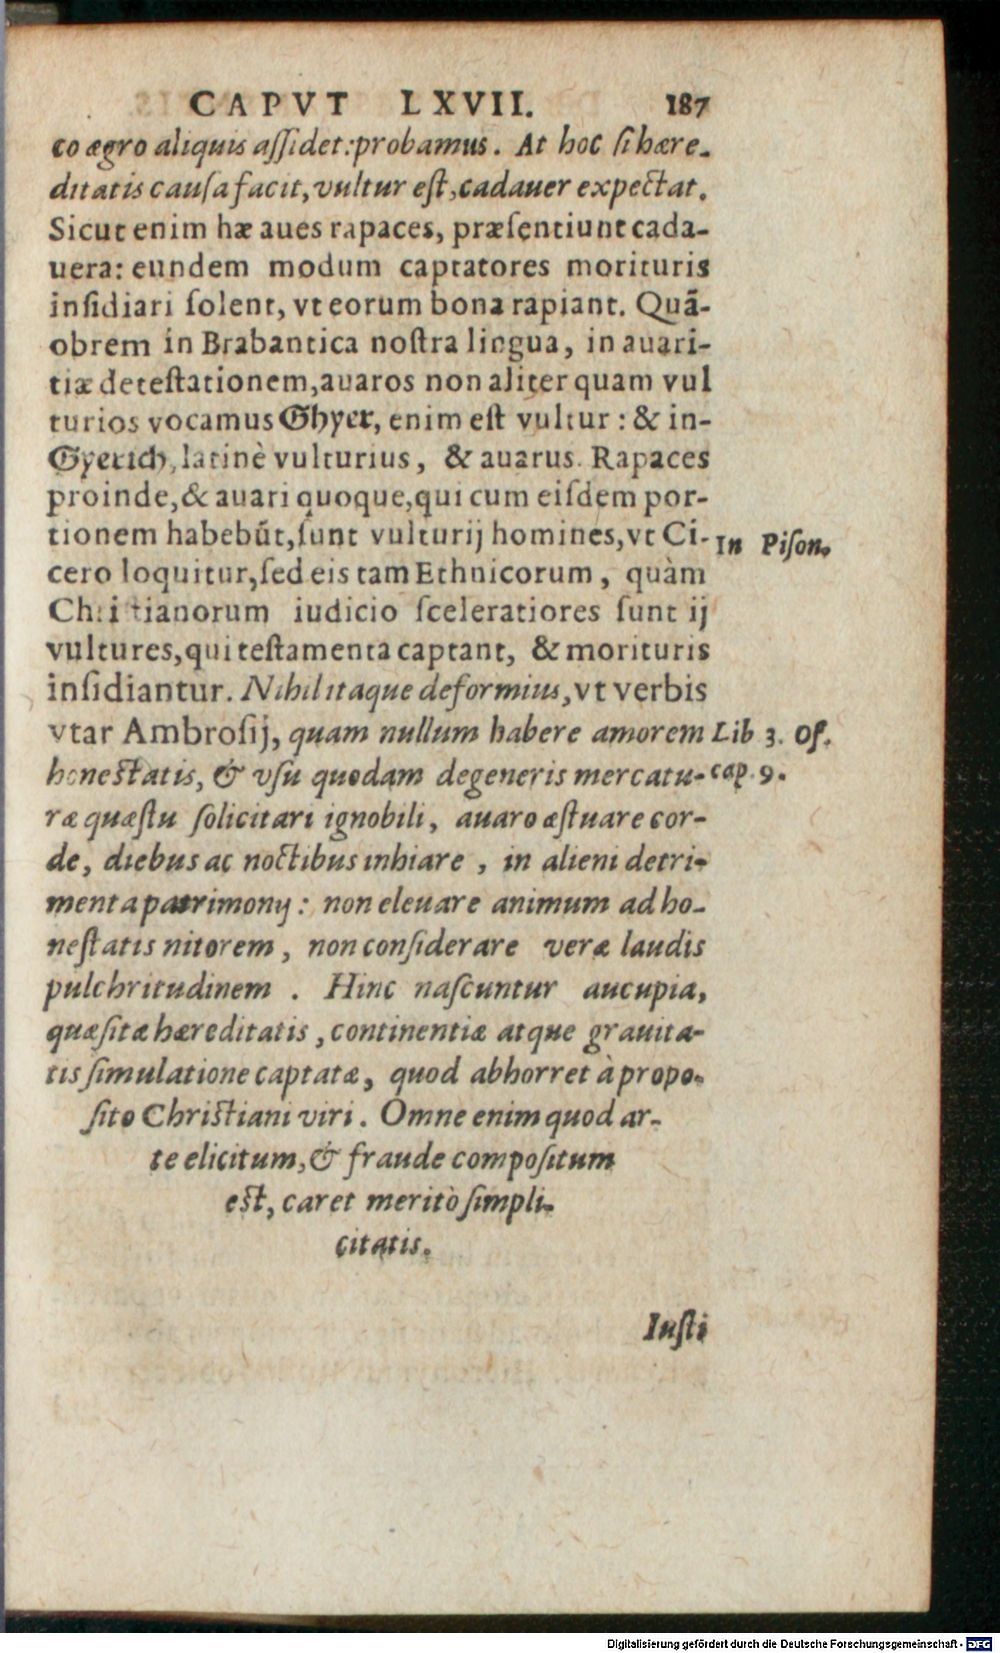 CAPVT LXVII. 187
co ægro aliquis aſſidet: probamus. At hoc ſi hære-
ditatis cauſa facit, vultur eſt, cadauer expectat.
Sicut enim hæ aues rapaces, præſentiunt cada-
uera: eundem modum captatores morituris
inſidiari ſolent, vt eorum bona rapiant. Quã-
obrem in Brabantica noſtra lingua, in auari-
tiæ deteſtationem, auaros non aliter quam vul
turios vocamus Ghyer, enim eſt vultur: & in-
Gyerich, latinè vulturius, & auarus. Rapaces
proinde, & auari quoque, qui cum eiſdem por-
tionem habebũt, ſunt vulturij homines, vt Ci-
In Piſon.
cero loquitur, ſed eis tam Ethnicorum, quàm
Chriſtianorum iudicio ſceleratiores ſunt ij
vultures, qui teſtamenta captant, & morituris
inſidiantur. Nihil itaque deformius, vt verbis
vtar Ambroſij, quam nullum habere amorem
Lib 3. Of.
honeſtatis, & vſu quodam degeneris mercatu-
cap. 9.
ræ quæſtu ſolicitari ignobili, auaro æſtuare cor-
de, diebus ac noctibus inhiare, in alieni detri-
menta patrimonij: non eleuare animum ad ho-
neſtatis nitorem, non conſiderare veræ laudis
pulchritudinem. Hinc naſcuntur aucupia,
quæſitæ hæreditatis, continentiæ atque grauita-
tis ſimulatione captatæ, quod abhorret à propo-
ſito Chriſtiani viri. Omne enim quod ar-
te elicitum, & fraude compoſitum
eſt, caret meritò ſimpli-
citatis.
Iuſti
Digitalisierung gefördert durch die Deutsche Forschungsgemeinschaft - DFG